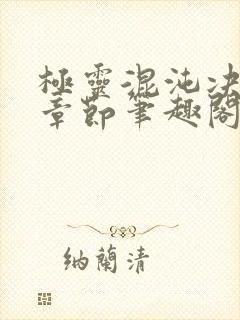 極靈混沌決
章節筆趣閣
納蘭清